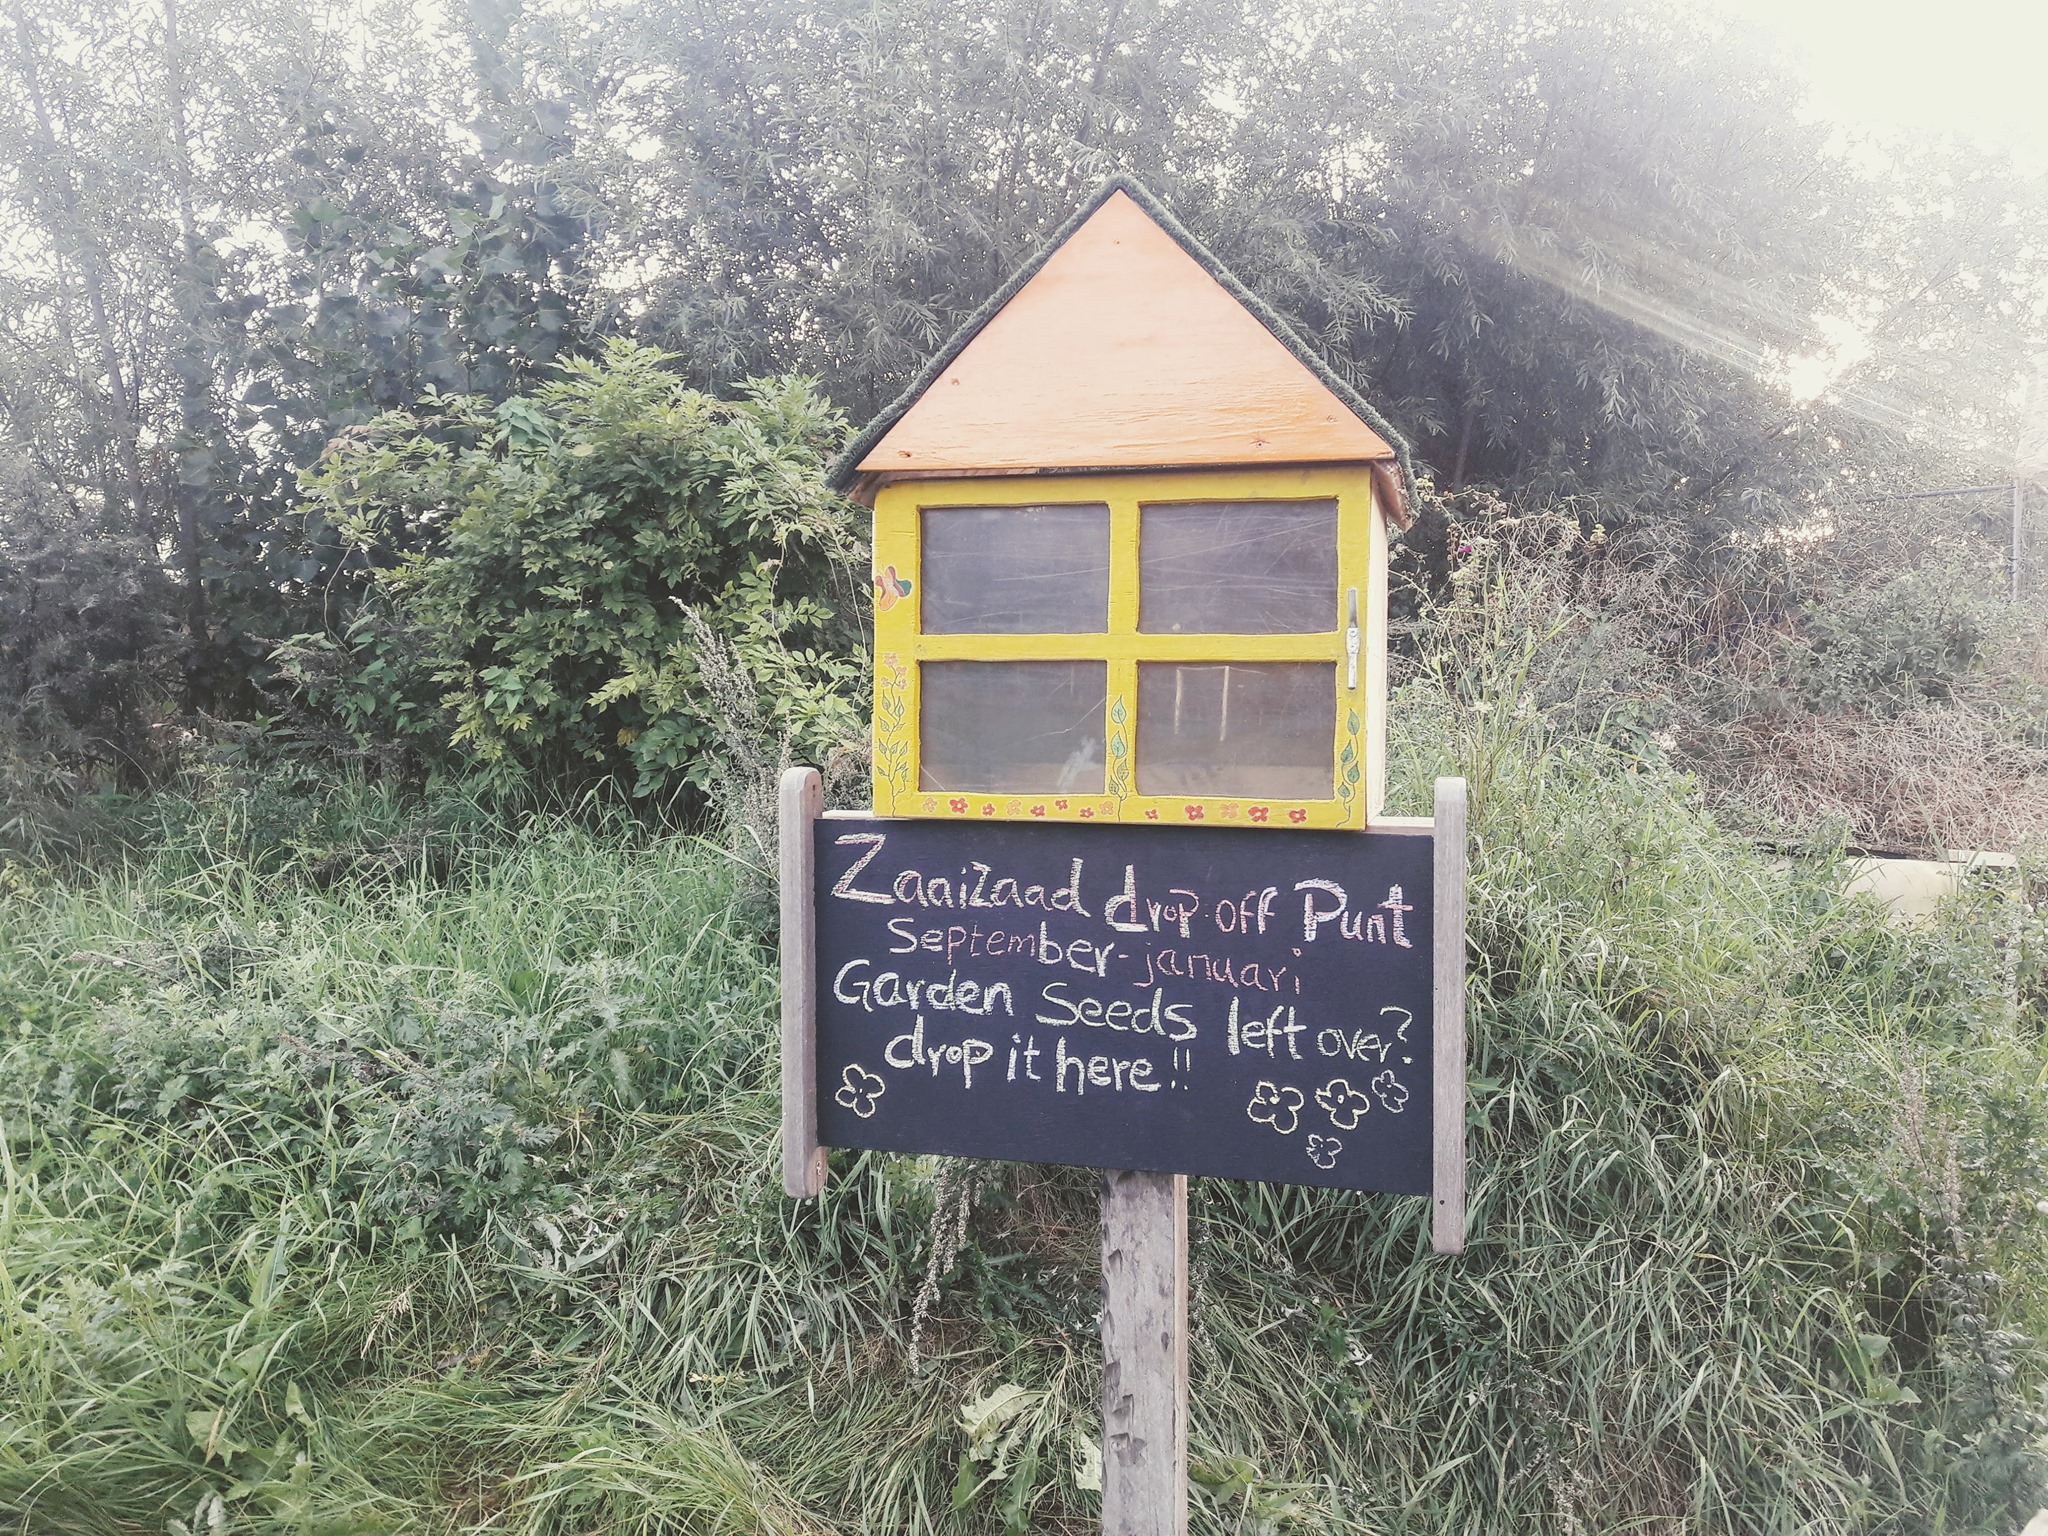 Zaaizaad drop-off Punt
September-januari
Garden Seeds left over?
drop it here!!